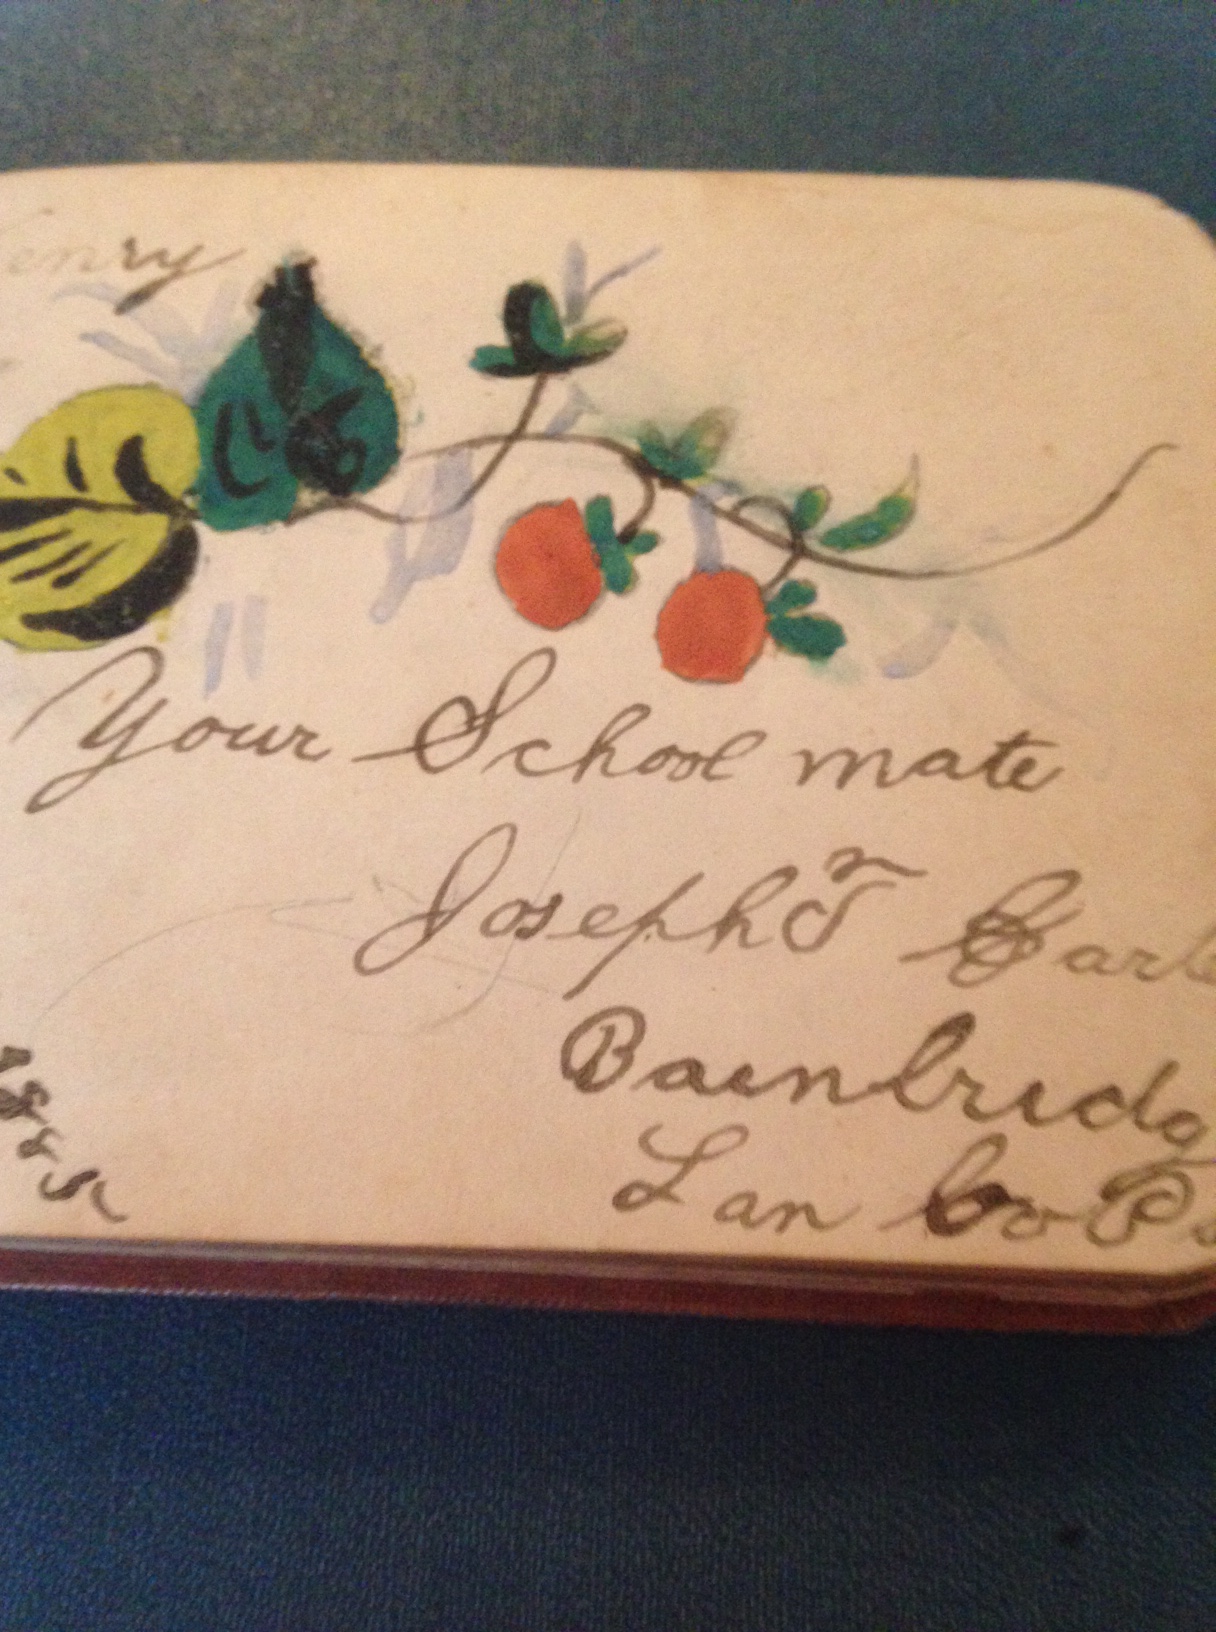 enry
Your School mate
Joseph
Bainbridg
Lan Co P
188